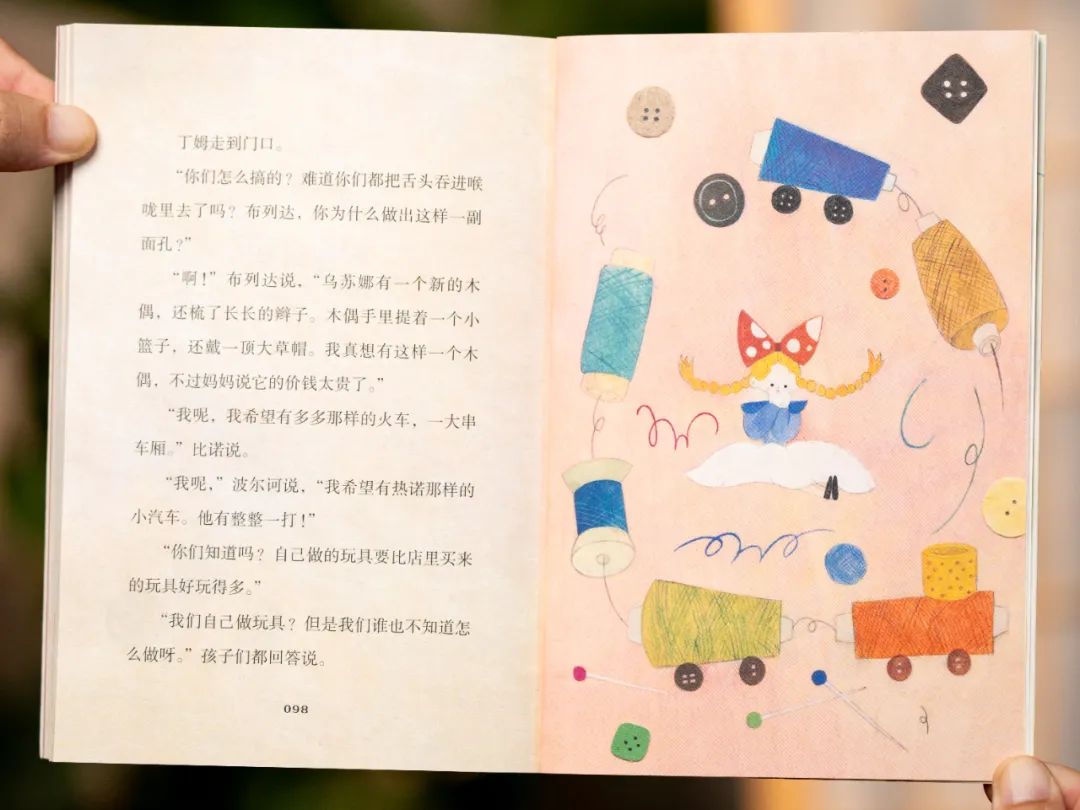 丁姆走到门口。
“你们怎么搞的？难道你们都把舌头吞进喉
咙里去了吗？布列达，你为什么做出这样一副
面孔？”
“啊！”布列达说，“乌苏娜有一个新的木
偶，还梳了长长的辫子。木偶手里提着一个小
篮子，还戴一顶大草帽。我真想有这样一个木
偶，不过妈妈说它的价钱太贵了。”
“我呢，我希望有多多那样的火车，一大串
车厢。”比诺说。
“我呢，”波尔诃说，“我希望有热诺那样的
小汽车。他有整整一打！”
“你们知道吗？自己做的玩具要比店里买来
的玩具好玩得多。”
“我们自己做玩具？但是我们谁也不知道怎
么做呀。”孩子们都回答说。
098